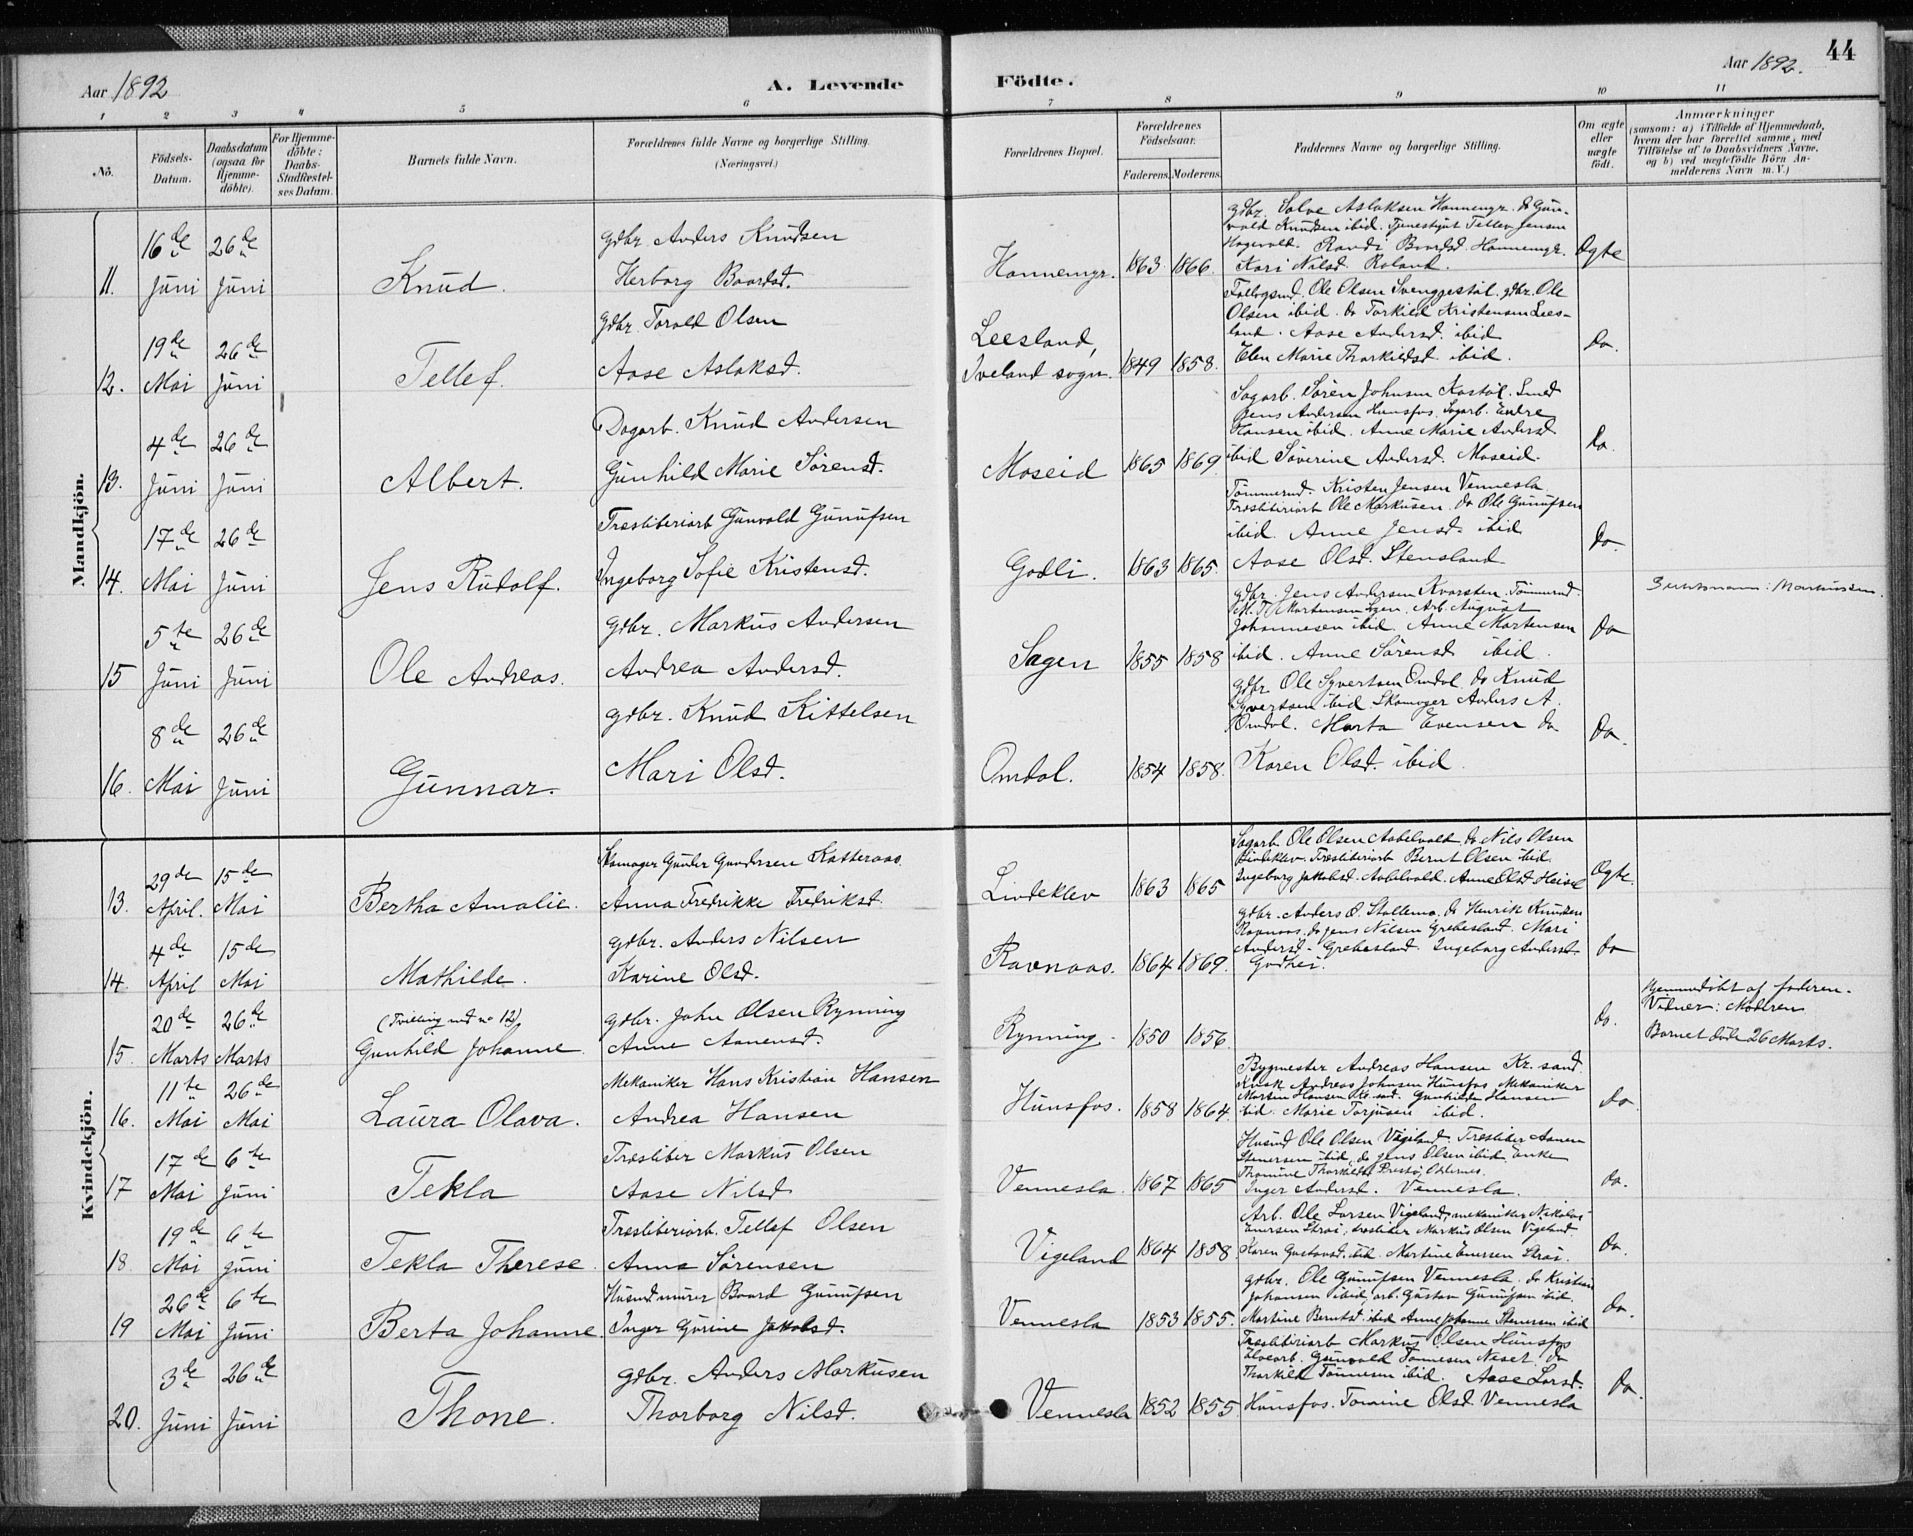 Aar 1892
A. Levende
Födte.
Aar 1892.
44
1 2 3 4 5 6 7 8 9 10 11
No.
Födsels-
Datum.
Daabsdatum
(ogsaa for
Hjemme-
döbte).
For Hjemme-
döbte:
Daabs-
Stadfæstel-
ses Datum.
Barnets fulde Navn.
Forældrenes fulde Navne og borgerlige Stilling.
(Næringsvei.)
Forældrenes Bopæl.
Forældrenes
Födselsaar.
Faderens. Moderens.
Faddernes Navne og borgerlige Stilling.
Om ægte
eller
uægte
födt.
Anmærkninger
(saasom: a) i Tilfælde af Hjemmedaab,
hvem der har forrettet samme, med
Tilföielse af to Daabsvidners Navne,
og b) ved uægtefödte Börn An-
melderens Navn m. V.)
Mandkjön.
11.
16de Juni
26de Juni
Knud.
gdbr. Anders Knudsen
Herborg Baardsd.
Honnemyr. 1863. 1866.
gdbr. Salve Aslaksen Honnemyr. do Gun-
vald Knudsen ibid. Tjenestgut Tellev Jensen
Randi Baardsd. Honnemyr.
Kari Nilsd. Roland.
Ægte
12.
19de Mai
26de Juni
Tellef.
gdbr. Torald Olsen
Aase Aslaksd.
Leesland,
Iveland sogn. 1849 1858.
Ole Olsen Svenggestøl. gdbr. Ole
Olsen ibid. do Torkild Kristensen Lees-
land. Aase Andersd. ibid
Elen Marie Thorkildsd. ibid.
do.
13.
4de Juni
26de Juni
Albert.
Dagarb. Knud Andersen
Gunhild Marie Sörensd.
Moseid 1865 1869.
Sagarb. Sören Johnsen Kostöl. Smed
Jens Andersen Hunsfos. Sagarb. Endre
Hansen ibid. Anne Marie Andersd
ibid Söverine Andersd. Moseid.
do.
14.
17de Mai
26de Juni
Jens Rudolf.
Træsliberiarb Gunvald Gunufsen
Ingeborg Sofie Kristensd.
Godli. 1863 1865.
Tömmermd. Kristen Jensen Vennesla
Træsliberiarb Ole Markusen. do Ole Gunufsen
ibid. Anne Jensd. ibid
Aase Olsd. Stensland
do.
15
5te Juni
26de Juni
Ole Andreas.
gdbr. Markus Andersen
Andrea Andersd.
Sagen 1855 1858
gdbr. Jens Andersen Kvarsten. Tömmermd.
Mortensen Sagen. Arb. August
Johannesen ibid. Anne Mortensen
ibid. Anne Sörensd ibid.
do
16.
8de Mai
26de Juni
Gunnar.
gdbr. Knud Kittelsen
Mari Olsd.
Omdal. 1854 1858.
gdbr. Ole Syvertsen Omdal. do Knud
Syvertsen ibid Skomager Anders A.
Omdal. Marta Evensen do
Karen Olsd. ibid.
do.
Kvindekjön.
13.
29de April.
15de Mai
Bertha Amalie.
Skomager Gunder Gundersen Katteraas.
Anna Fredrikke Fredriksd.
Lindeklev 1863 1865
Sagarb Ole Olsen Aabelvold do Nils Olsen
Lindeklev. Træsliberiarb Bernt Olsen ibid.
Ingeborg Jakobsd. Aabelvold. Anne Olsd Heisel
Ægte.
14.
4de April
15de Mai
Mathilde.
gdbr. Anders Nilsen
Karine Olsd.
Ravnaas. 1864 1869.
gdbr. Anders O. Stallemo. do Henrik Knudsen
Ravnaas. do Jens Nilsen Grebesland. Mari
Andersd. Grebesland. Ingeborg Andersd.
do
15.
20de Marts
26de Marts
(Tvilling med no 12)
Gunhild Johanne
gdbr. John Olsen Rynning
Anne Aanensd.
Rynning. 1850 1856.
do.
Hjemmedöbt af faderen.
Vidner: Moderen
Barnet döde 26 Marts.
16.
11te Mai
26de Mai
Laura Olava.
Mekaniker Hans Kristian Hansen
Andrea Hansen
Hunsfos. 1858 1864.
Bygmester Andreas Hansen Kr. sand.
Kusk Andreas Johnsen Hunsfos. Mekaniker
Martin Hansen Kr. sand. Gunhilde Hansen
ibid. Marie Torjusen ibid.
do
17
17de Mai
6te Juni
Tekla
Træsliber Markus Olsen
Aase Nilsd
Vennesla. 1867 1865
Husmd Ole Olsen Vigeland. Træsliber Aanen
Stenersen ibid. do Jens Olsen ibid. Enke
Thomine Thorkilds
Inger Andersd. Vennesla.
do.
18.
19de Mai
6te Juni
Tekla Therese
Træsliberiarb. Tellef Olsen
Anna Sörensen
Vigeland 1864 1858
Arb. Ole Larsen Vigeland, mekaniker Nikolai
Enersen Strai, træsliber Markus Olsen Vigeland
Karen Gustavsd. ibid. Martine Enersen Strai.
do.
19
26de Mai
6te Juni
Berta Johanne.
Husmd murer Baard Gunufsen
Inger Gurine Jakobsd.
Vennesla 1853 1855.
gdbr. Ole Gunufsen Vennesla. do Kristian
Johansen ibid. arb. Gustav Gunufsen ibid.
Martine Berntsd. ibid Anne Johanne Stenersen ibid
do.
20.
3de Juni
26de Juni
Thone.
gdbr. Anders Markusen
Thorborg Nilsd.
Vennesla 1852 1855.
Træsliberiarb Markus Olsen Hunsfos
Elvearb. Gunvald Tönnesen Neset. do
Thorkild Tönnesen ibid. Aase Larsd.
Hunsfos. Tomine Olsd Vennesla
do.